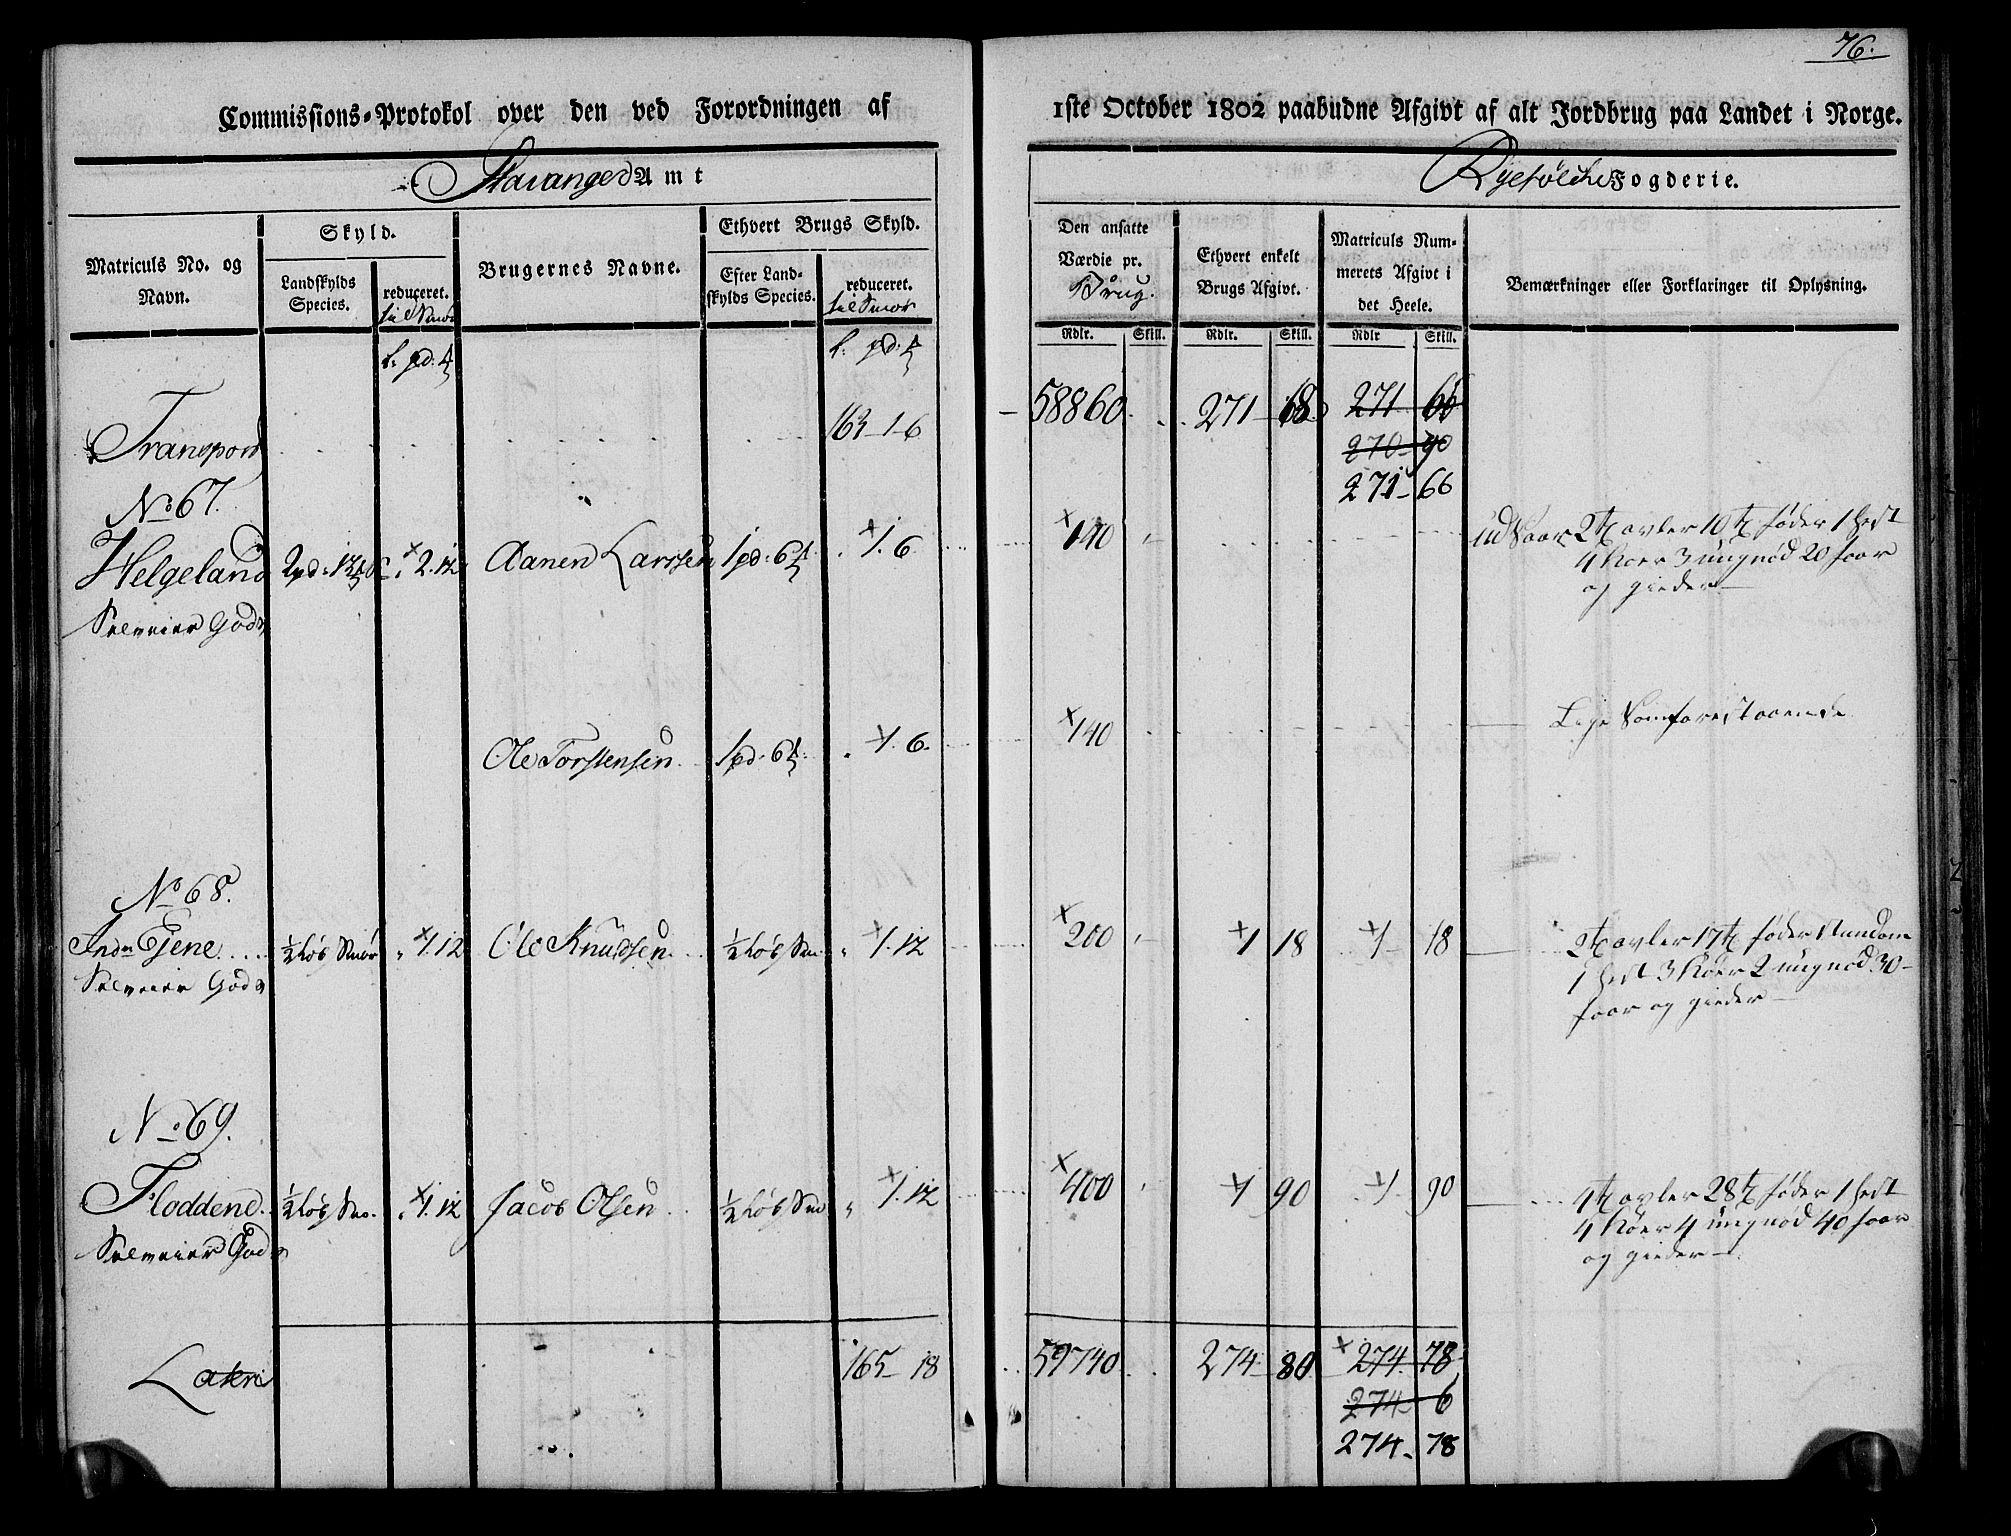 76.
Commissions-Protokol over den ved Forordningen af 1ste October 1802 paabudne Afgivt af alt Jordbrug paa Landet i Norge.
Stavanger Amt
Ryefølche Fogderie.
Matriculs No. og Navn.
Skyld.
Landskylds Species.
reduceret.
til Smør
Brugernes Navne.
Ethvert Brugs Skyld.
Efter Landskylds Species.
reduceret.
til Smør
Den ansatte Værdie pr. Brug.
Ethvert enkelt Brugs Afgivt.
Matriculs Nummerets Afgivt i det Heele.
Bemærkninger eller Forklaringer til Oplysning.
Rdlr. Skill. Rdlr. Skill. Rdlr Skill.
l: pd: l: pd:
Transport 163-1-6 58860. 271-68 271 66
270-90
271-66
No 67.
Helgeland 2pd: 12 " 2.12 Aanen Larssen 1pd: 6 " 1.6 140 udsaar 2 t avler 10 t føder 1 hest
4 Køer 3 ungnød 20 faar
og gieder
Selveier Gods
Ole Torstensen 1pd. 6 " 1.6. 140 Lige som forestaaende
No 68.
Indre Eene ½ Løb Smør " 1.12 Ole Knudsen ½ Løb Sm " 1.12 200 1 18 1 18 2 t avler 17 t føder
1 hest 3 Køer 2 ungnød 30
faar og gieder
Selveier Gods
No 69.
Floddene ½ Løb Smø. " 1.12 Jacob Olsen ½ Løb Smø " 1.12 400 1 90 1 90 4 t avler 28 t føder 1 hest
4 Køer 4 ungnød 40 faar
og gieder
Selveier Gods
Lateri 165-18 59740 274-80 274 78
274-6
274-78